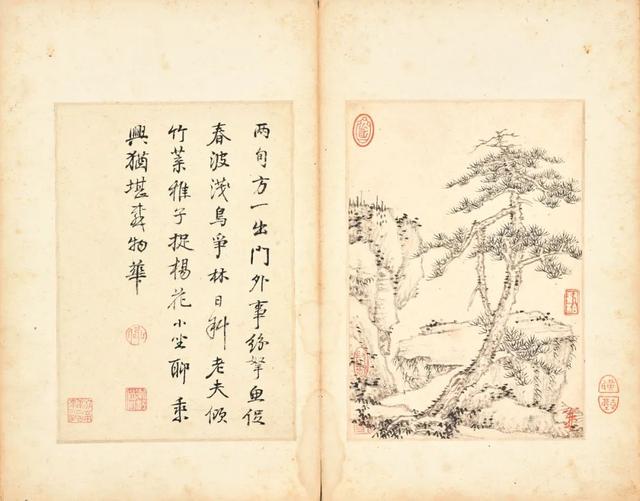 两旬方一出門外事紛拏魚促
春波淺鳥爭林日斜老夫傾
竹葉稚子捉楊花小坐聊乘
興猶堪物華